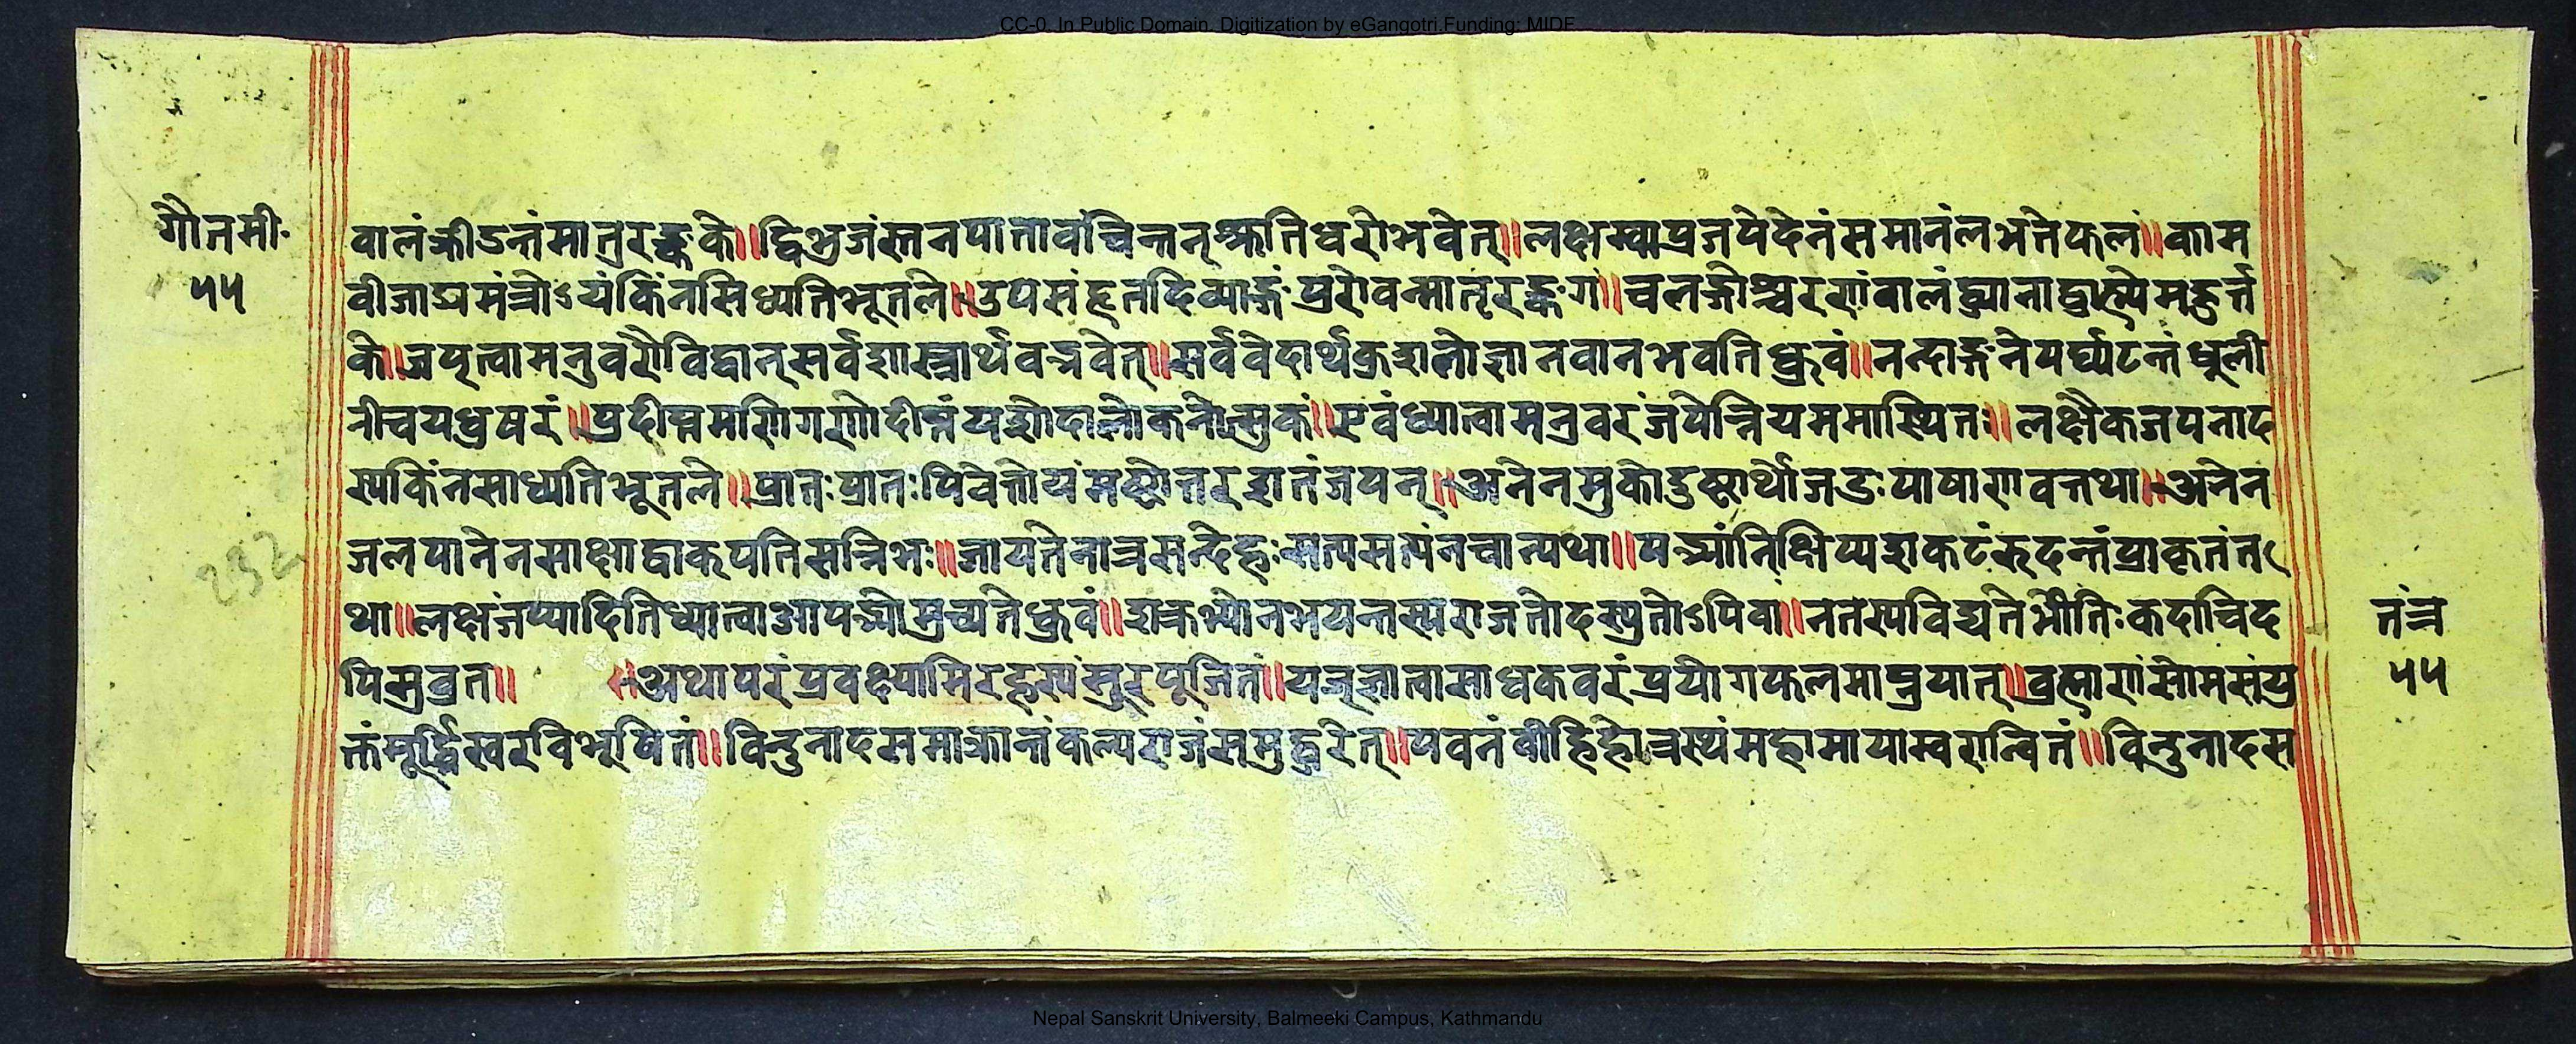 CC-0. In Public Domain. Digitization by eGangotri.Funding: MIDF
गौतमी॰
५५
वालंक्रीडन्तंमातुरङ्कके॥द्विभुजंस्तनपातावंचिन्तन्श्रुतिधरोभवेत्॥लक्षम्वाप्रजपेदेनंसमानंलभतेफलं॥काम
वीजाद्यमंत्रोऽयंकिंनसिध्यतिभूतले॥उपसंहृतदिव्याङ्गंपुरोवन्मातृरङ्कग॥चलङ्गोश्चरणंवालंध्यानाद्वाल्येमङ्गुर्त्त
के॥जपृत्वामनुवरोविद्वान्सर्वशास्त्रार्थवद्भवेत्॥सर्ववेदार्थकुशलोज्ञानवानभवतिध्रुवं॥नन्दाङ्गनेपर्य्यटन्तंधूली
नीचयधुषरं॥प्रदीप्तमणिगणोदीप्तंयशोदालोकनोत्सुकं॥एवंध्यात्वामनुवरंजपेन्नियममास्थित॥लक्षैकजपनाद
स्यकिंनसाध्यतिभूतले॥प्रातःप्रातःपिवेत्तोयंमष्टोत्तरशतंजपन्॥अनेनमुकोदुष्टार्थोजडःपाषाणवत्तथा॥अनेन
जलपानेनसाक्षाद्वाकपतिसन्निभः॥जायतेनात्रसन्देहःसत्यसत्यंनचान्यथा॥पद्भ्यांनिक्षिप्यशकटंरुदन्तंप्राकृतंत
था॥लक्षंजप्यादितिध्यात्वाआपद्भ्योमुच्यतेध्रुवं॥शत्रुभ्योनभयन्तस्यराजतोदस्युतोऽपिवा॥नतस्यविद्यतेभीतिःकदाचिद
पिसुव्रत॥ ॥अथापरंप्रवक्ष्यामिरहस्यंसुरपूजितं॥यज्ज्ञात्वासाधकवरंप्रयोगफलमाप्नुयात्॥व्रह्माणंसोमसंयु
क्तंमूर्द्ध्निस्वरविभूषितं॥विन्दुनादसमाक्रान्तंकल्पराजंसमुद्धरेत्॥पवनंवीहिहोत्रस्थंमहामायास्वरान्वितं॥विन्दुनादस
तंत्र
५५
232
Nepal Sanskrit University, Balmeeki Campus, Kathmandu